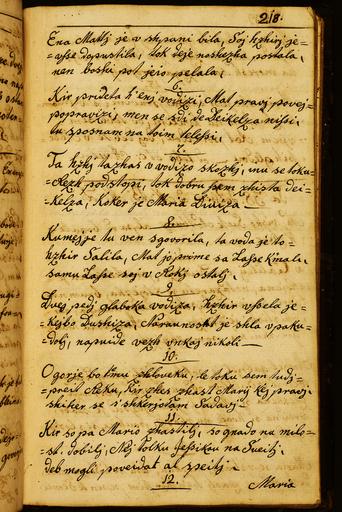 218.
Ena Matti je v shpani bila, Soj hzhirj je=
=vsse dopustila, tok deje noseszha postala,
nen boshu pot jeio pelala.
6.
Kir prideta k' enj vodizi, Mat pravj povej=
popravizi, men se sdi de Deikelza nissi,
tu sposnam na toim telessi.
7.
Ta hzhj tazhas v vodizo skozhj, mu se toku=
podstopi, tok dobru sem zhista dei=
=kelza, koker je Maria Diviza —
8.
Kumej je tu ven sgovorila, ta voda je to=
hzhir Salila, Mat jo prime sa Lasse
samu Lasse soj v Rokj ostalj.
9.
Dvej pedj glaboka vodiza, hzhir vssela je=
=kejbo Dushiza, je shla v paku=
=dolj, napride vezh vnkaj nikoli —
10.
O gorje bo tmu zhloveku, le toku sem ludj=
=preit Reku, Kir zhes zhast Marij kej pravj
skiher se s' shkerjotam Sadavj.
11.
Kir so pa Mario zhastilj, so gnado nu milo=
=st. dobilj, Nej tolku Jessikou na Sveitj
deb mogli poveidat al speitj.
12.
Maria